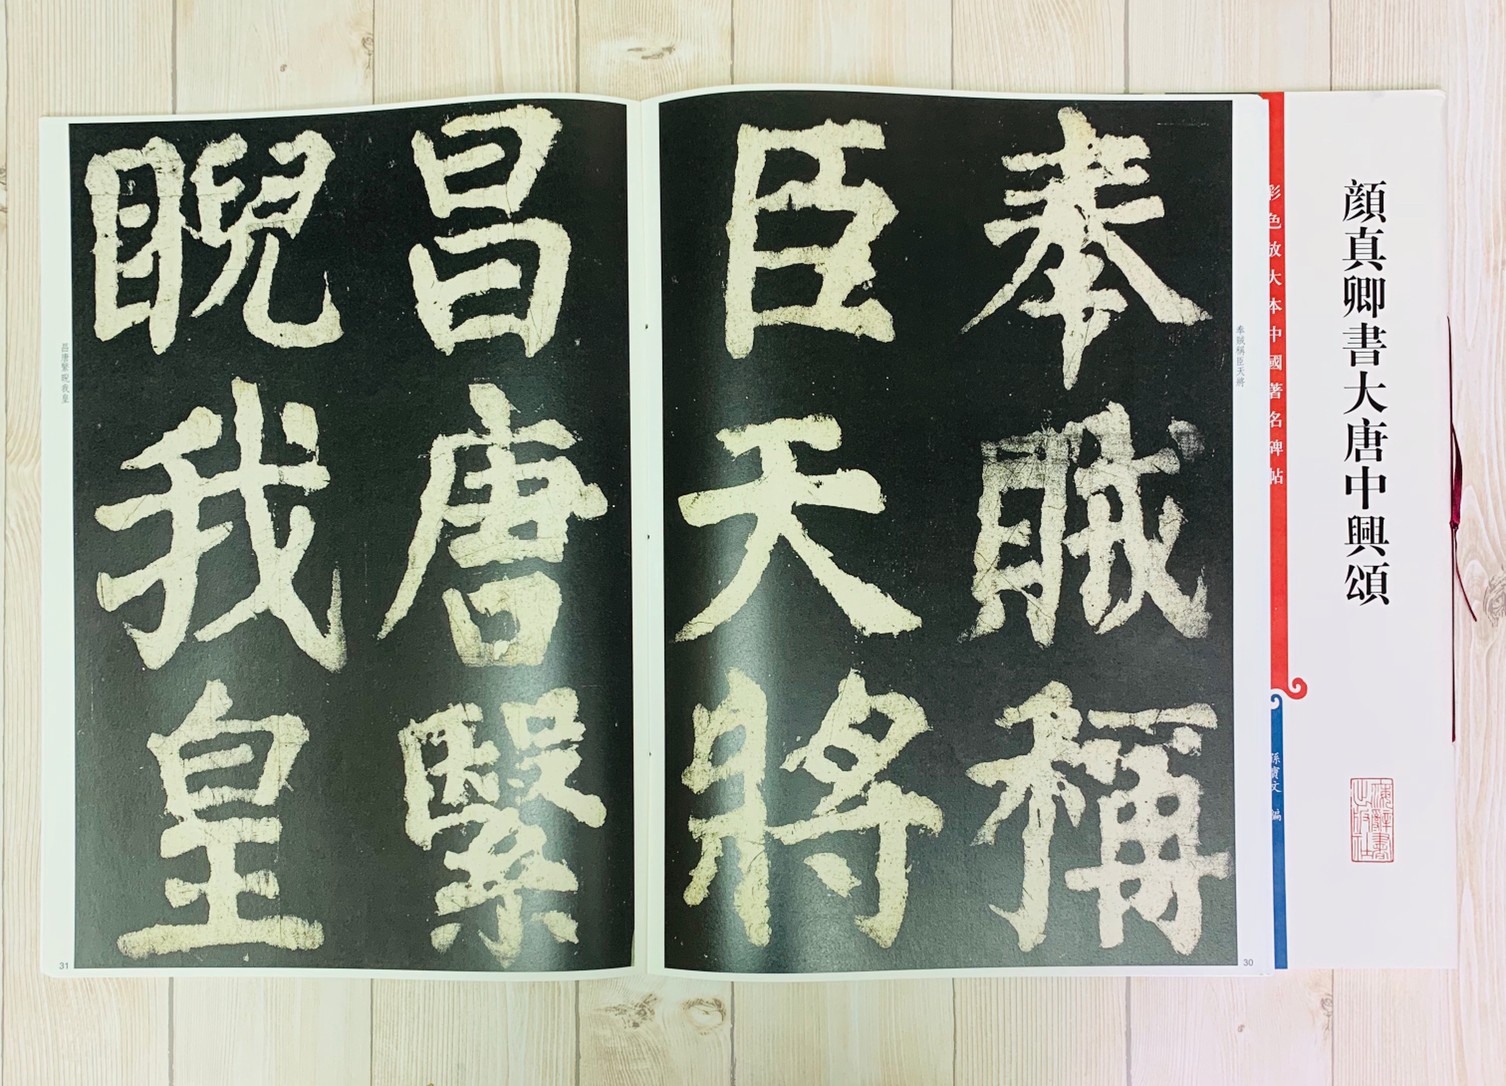 顔真卿書大唐中興頌
彩色放大本中國著名碑帖
孫寶文 編
海辭書
出版社
奉賊稱臣天將
奉賊稱
臣天將
30
昌唐繄
睨我皇
昌唐繄睨我皇
31